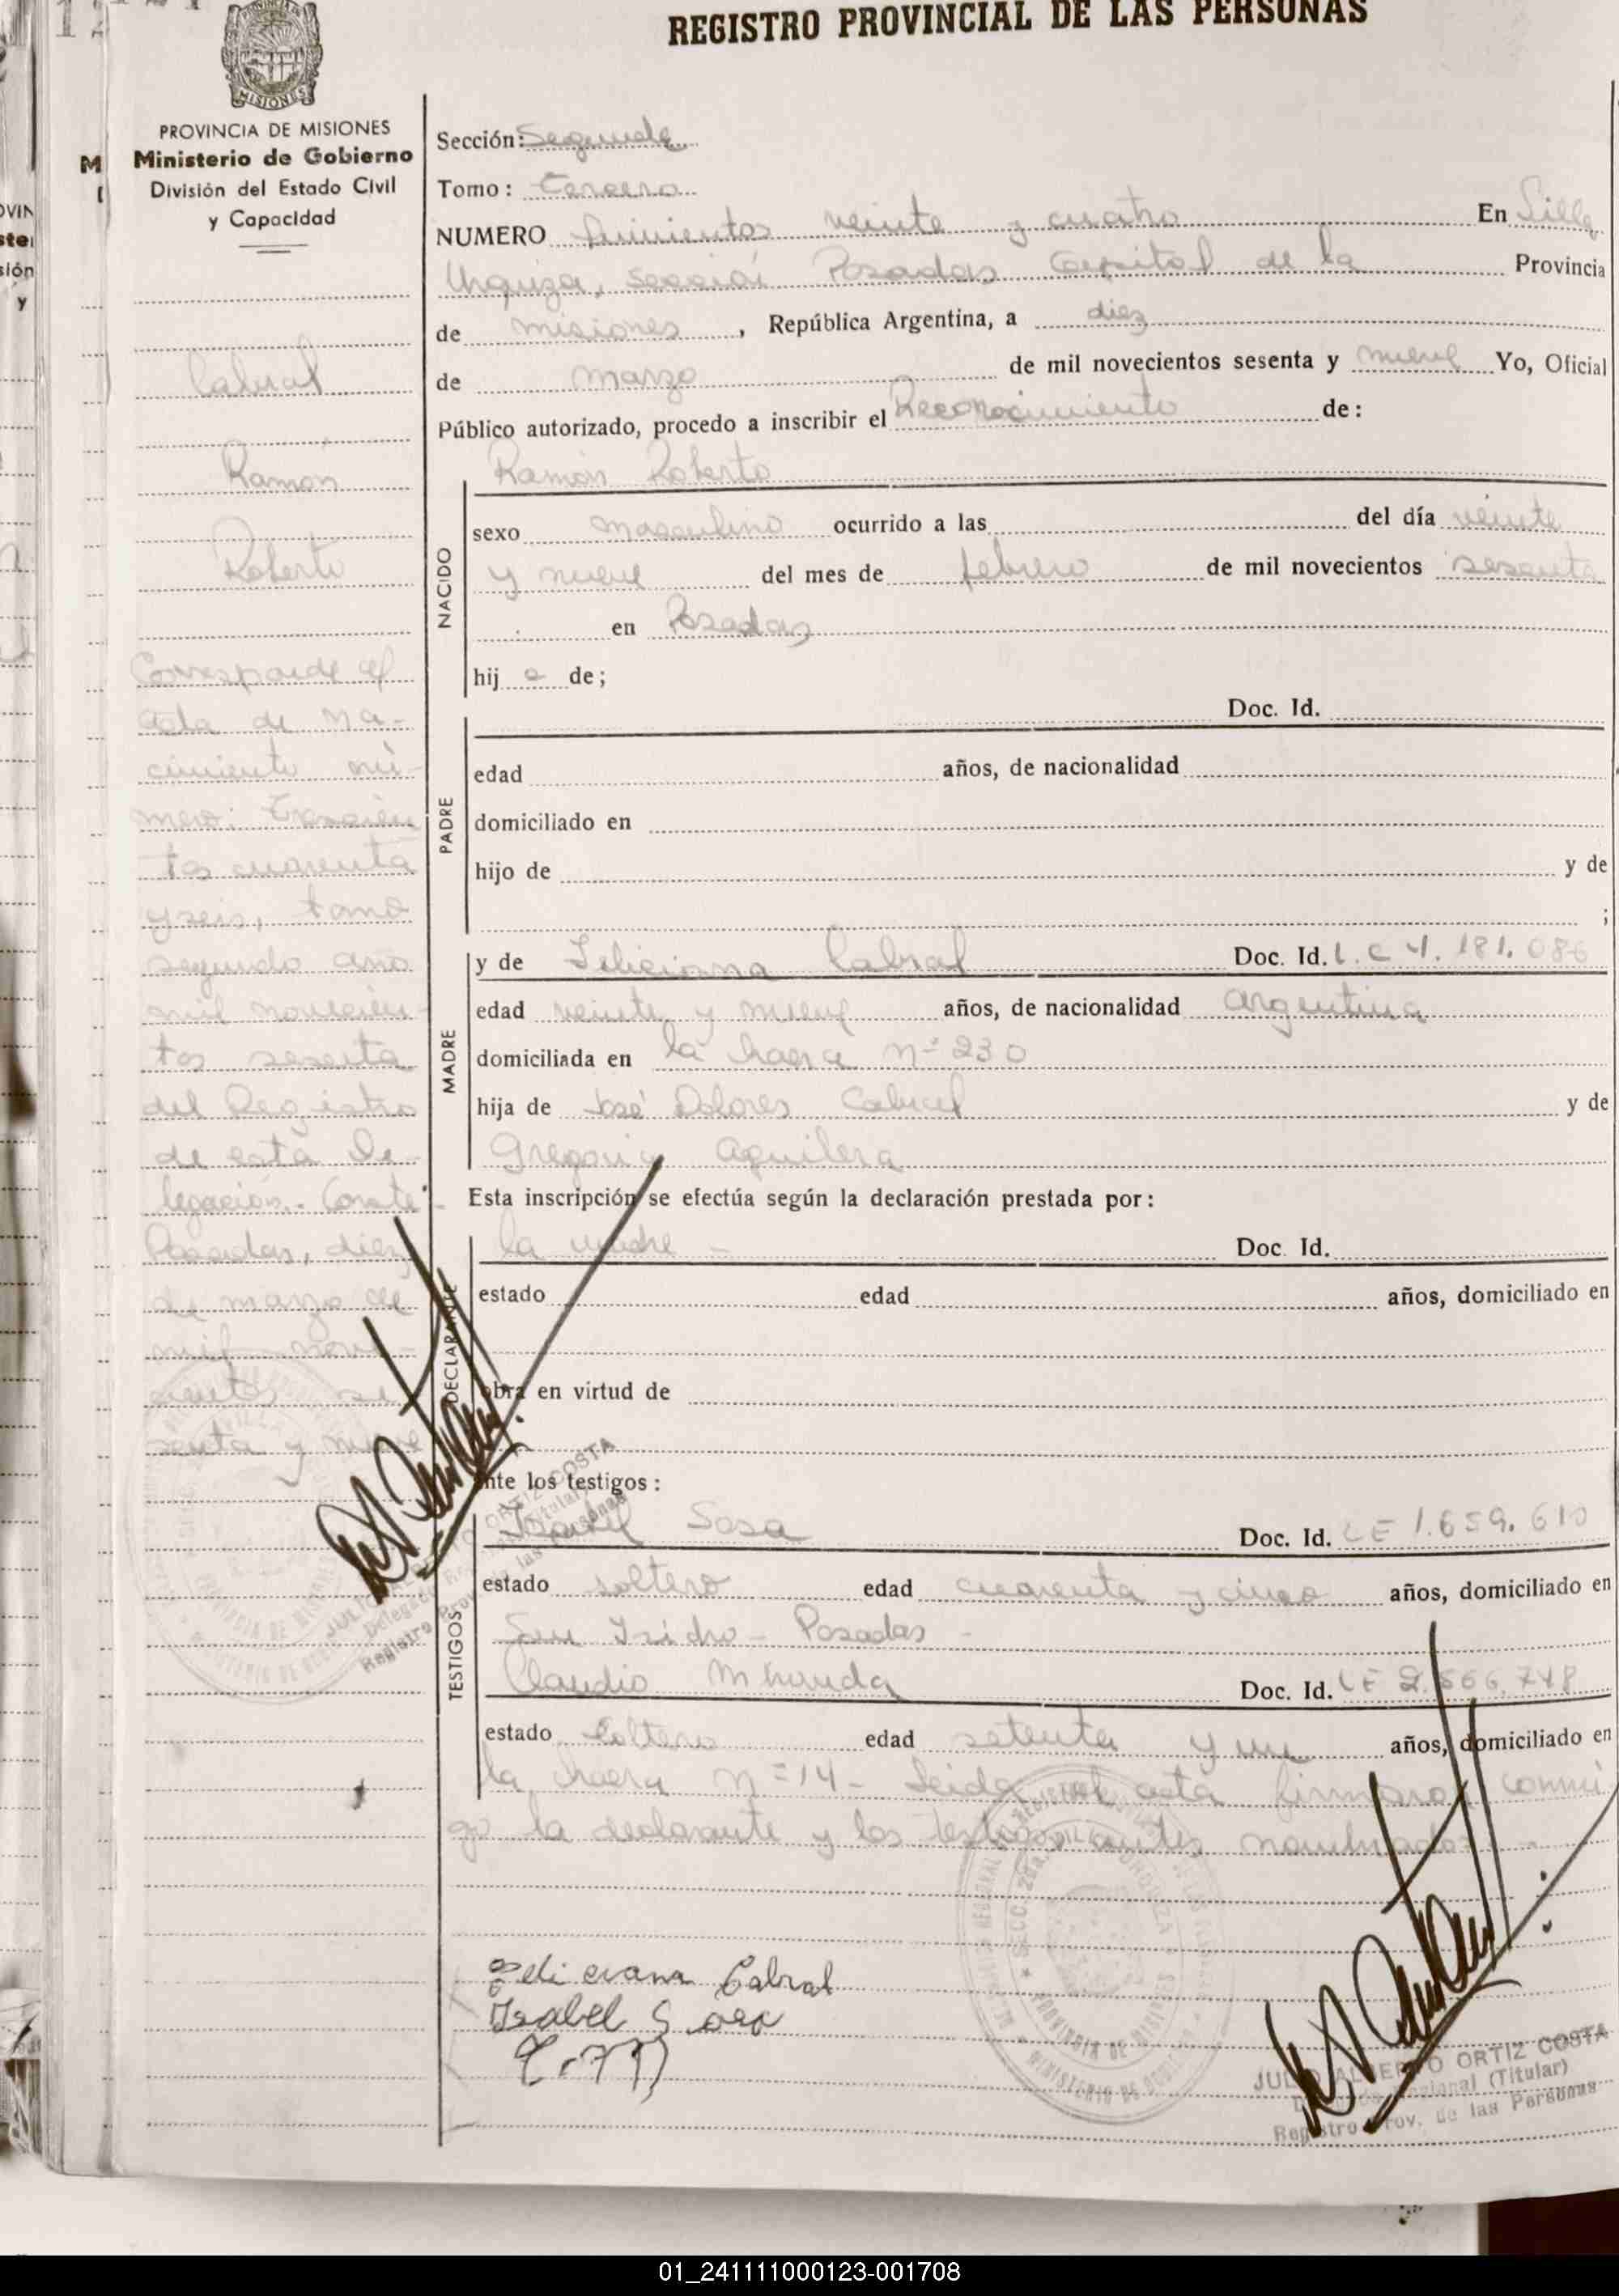 REGISTRO PROVINCIAL DE LAS PERSONAS
MISIONES
PROVINCIA DE MISIONES
Ministerio de Gobierno
División del Estado Civil
y Capacidad
Cabral
Ramón
Roberto
Corresponde al
acta de na-
cimiento nú-
mero: trescien
tos cuarenta
y seis, tomo
segundo año
mil novecien-
tos sesenta
del Registro
de esta De-
legación. Conste
Posadas, diez
de marzo de
mil nove-
cientos se
senta y nueve
Sección: Segunda
Tomo: tercero
NUMERO quinientos veinte y cuatro En Villa
Urquiza, sección Posadas Capital de la Provincia
de misiones, República Argentina, a diez
de marzo de mil novecientos sesenta y nueve Yo, Oficial
Público autorizado, procedo a inscribir el Reconocimiento de:
Ramón Roberto
NACIDO
sexo masculino ocurrido a las del día veinte
y nueve del mes de febrero de mil novecientos sesenta
en Posadas
hij o de;
PADRE
Doc. Id.
edad años, de nacionalidad
domiciliado en
hijo de y de
;
MADRE
y de Feliciana Cabral Doc. Id. L.C 4.181.086
edad veinte y nueve años, de nacionalidad argentina
domiciliada en la chacra nº 230
hija de José Dolores Cabral y de
Gregoria Aguilera
Esta inscripción se efectúa según la declaración prestada por:
DECLARANTE
la madre - Doc. Id.
estado edad años, domiciliado en
obra en virtud de
ante los testigos:
TESTIGOS
Isabel Sosa Doc. Id. LE 1.659.610
estado soltero edad cuarenta y cinco años, domiciliado en
San Isidro - Posadas -
Claudio Miranda Doc. Id. LE 2.566.748
estado soltero edad setenta y un años, domiciliado en
la chacra nº 14 - Leida el acta firmaron conmi
go la declarante y los testigos antes nombrados -
Feliciana Cabral
Isabel Sosa
JULIO ALBERTO ORTIZ COSTA
(Titular)
Registro Prov. de las Personas
01_241111000123-001708